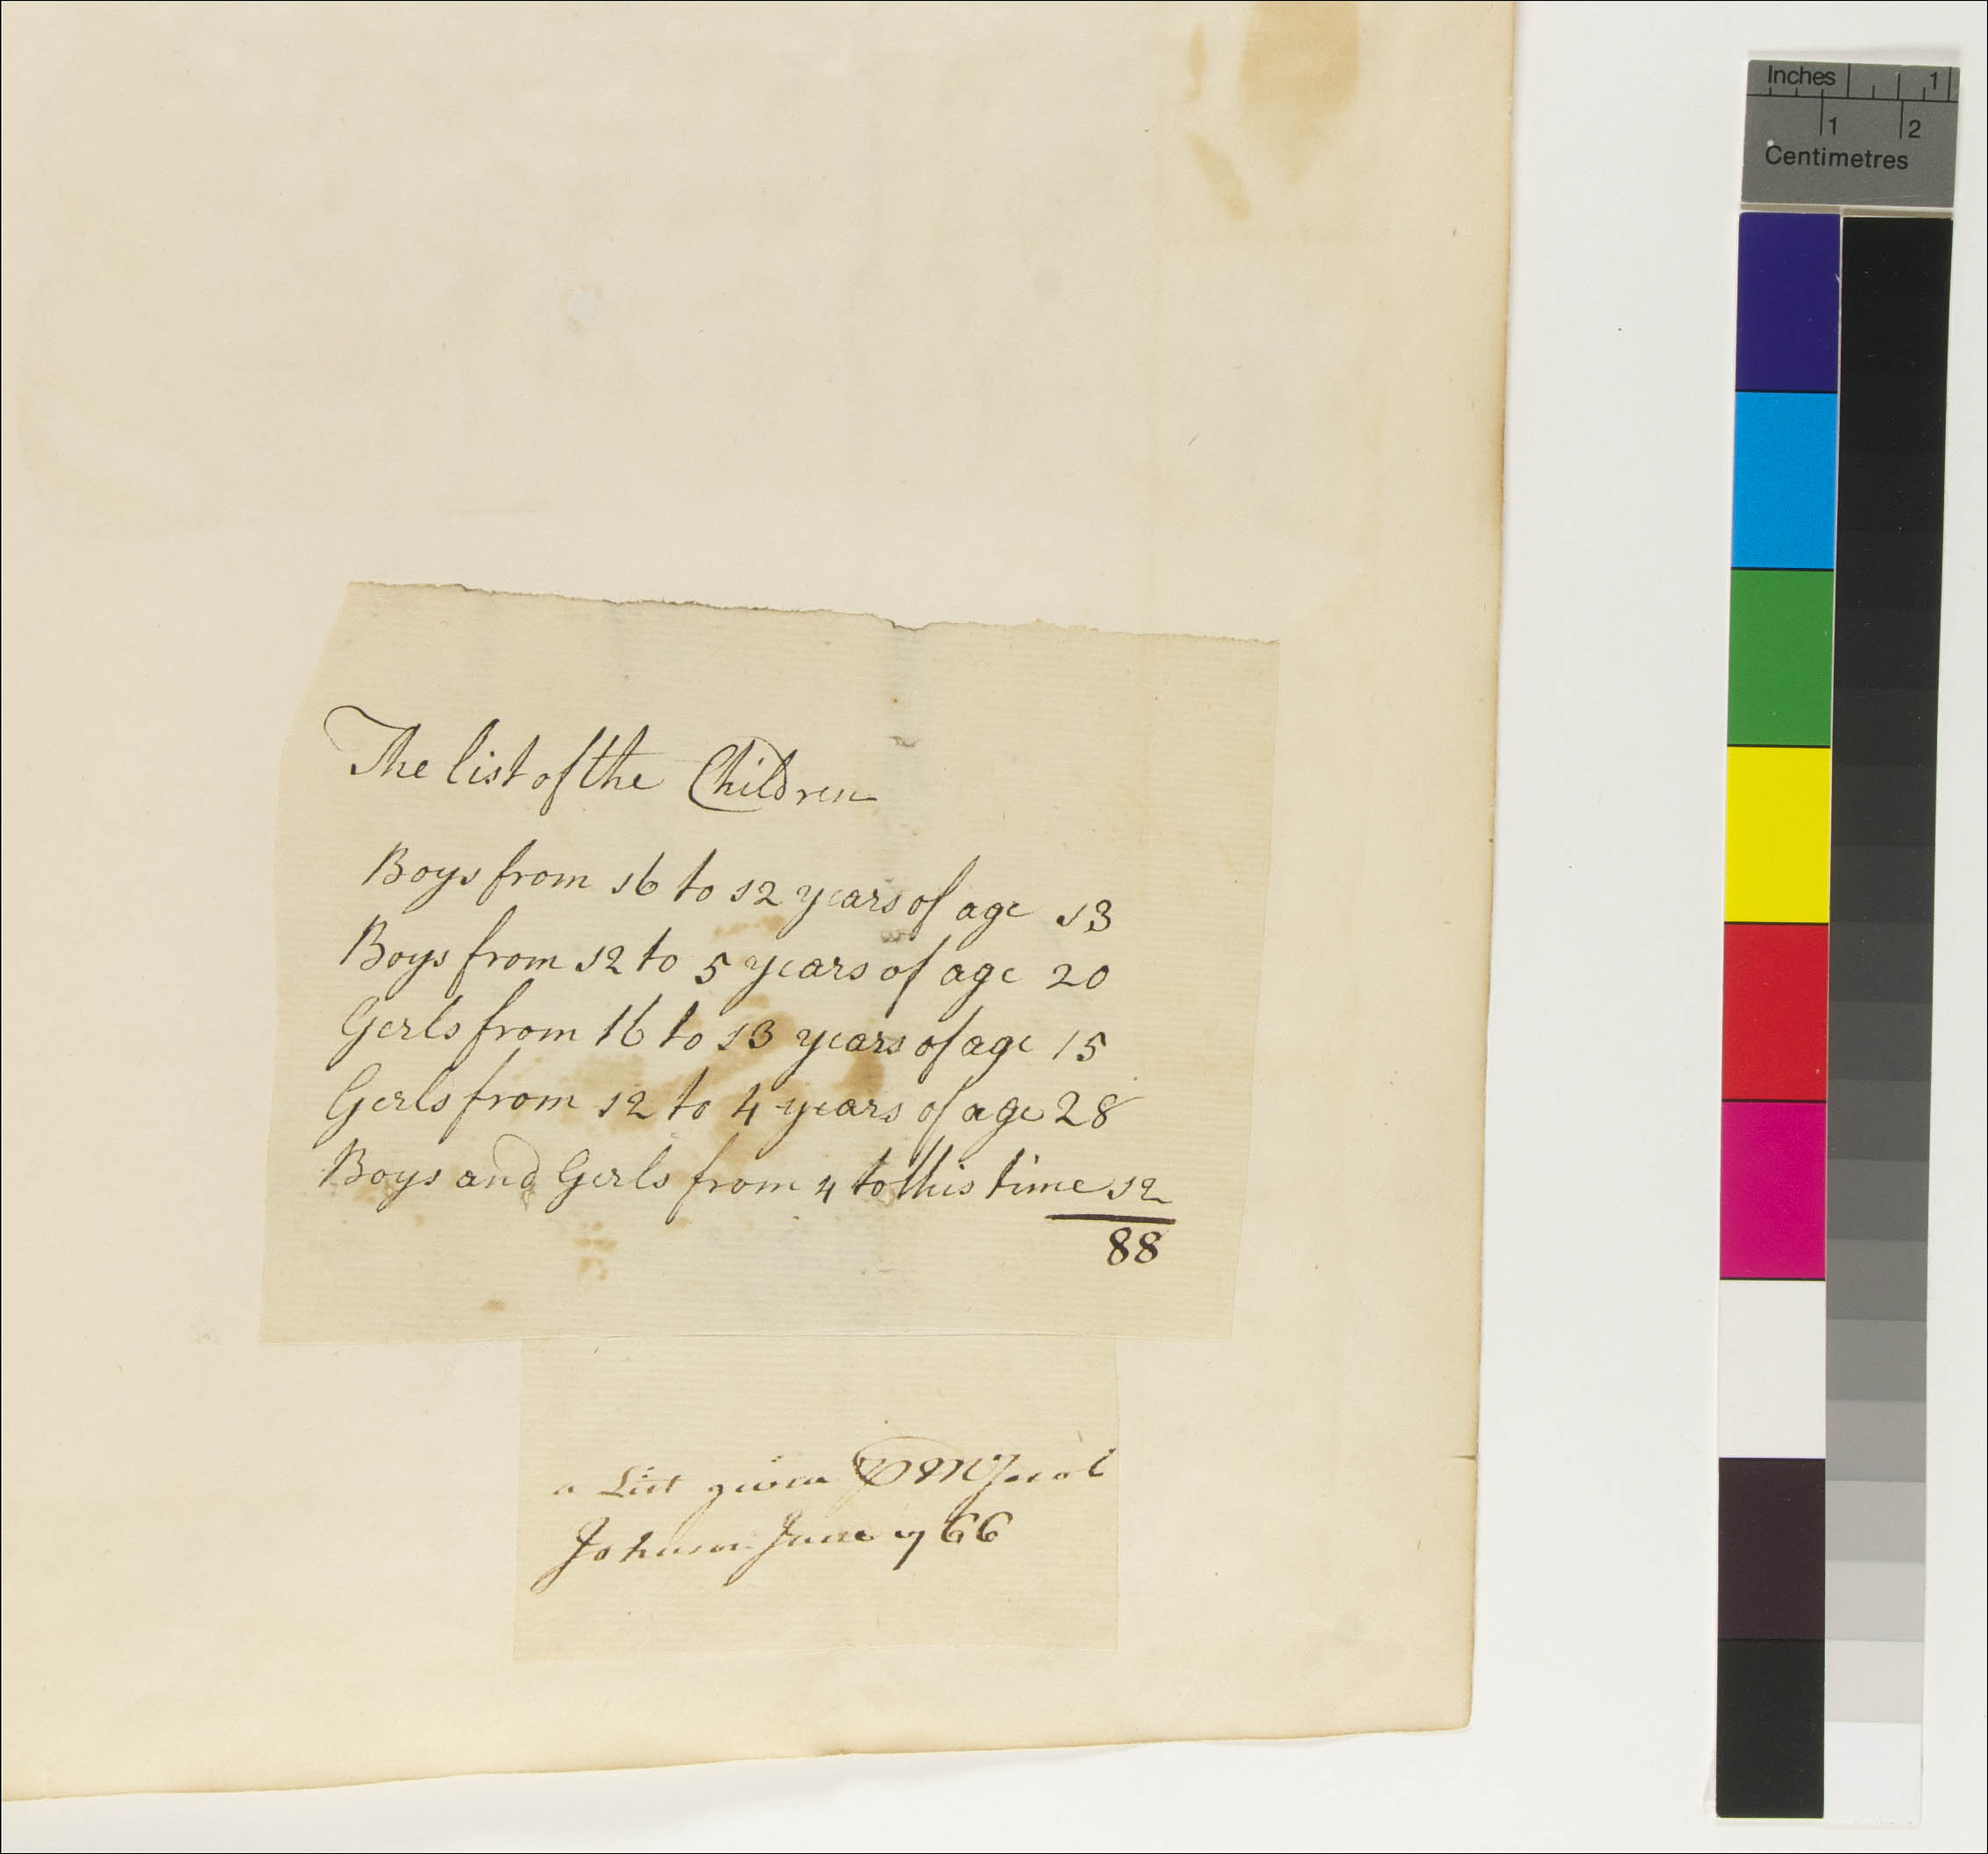 Inches 1
1 2
Centimetres
The list of the Children
Boys from 16 to 12 years of age 13
Boys from 12 to 5 years of age 20
Gerls from 16 to 13 years of age 15
Gerls from 12 to 4 years of age 28
Boys and Gerls from 4 to this time 12
88
a List given ⅌ Mr Jacob
Johnson June 1766